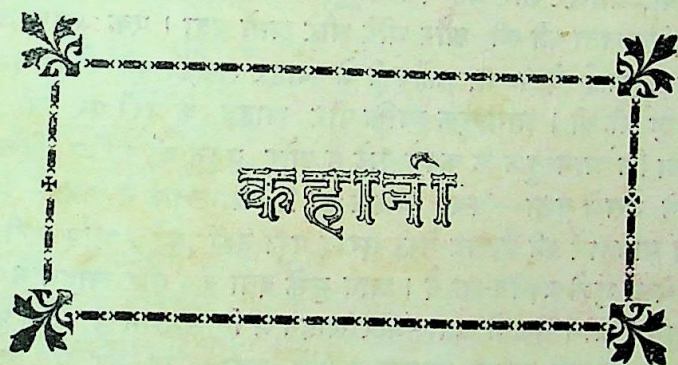 कहानी